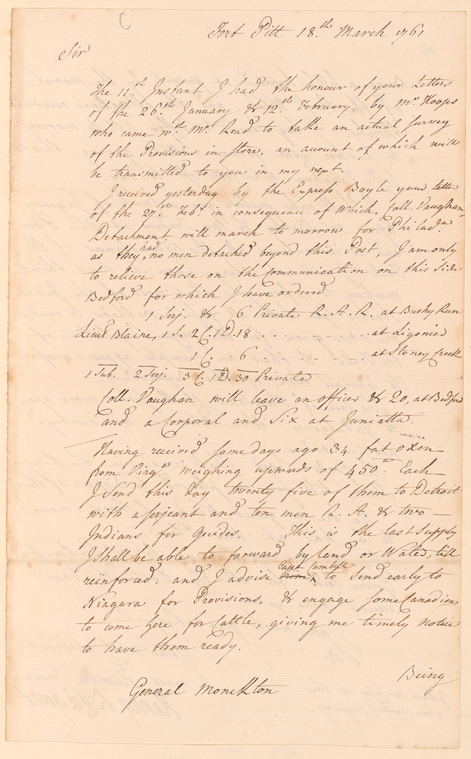 Fort Pitt 18.th March 1761
Sir
The 11.th Instant I had the honour of your Letters
of the 26.th January & 12.th February by Mr. Hoops
who came wth Mr. Read to take an actual Survey
of the Provisions in Store, an amount of which will
be transmitted to you in my next.
I received yesterday by the Express Boyle your letter
of the 27.th Feb.y in consequence of which, Coll. Vaughan
Detachment will march to morrow for Philad.a
as they had no men detached beyond this Post, I am only
to relieve those on the Communication on this Side
Bedford for which I have ordered
1 Serj. & 6 Private R. A. R. at Bushy Run
Lieut Blaine, 1 S. 2 C. 1 D. 18 . . . . . . . . . . at Ligonier
1 C. 6 . . . . . . . . . . at Stoney Creek
1 Sub. 2 Serj. 3 C. 1 D. 30 Private
Coll. Vaughan will leave an officer & 20, at Bedford
and a Corporal and Six at Juniatta.
Having received some days ago 34 fat oxen
from Virg.a weighing upwards of 450 Each
I Send this day twenty five of them to Detroit
with a Serjeant and ten men R. A. & two
Indians for Guides. This is the last Supply
I shall be able to forward by Land or Water, till
reinforced. and I advise Capt. Cambell to Send early to
Niagara for Provisions, & engage some Canadians
to come here for Cattle, giving me timely notice
to have them ready.
Being
General Monckton